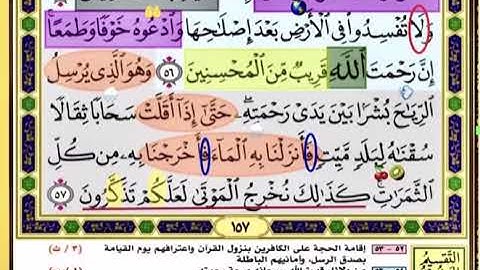 وَلَا تُفْسِدُوا۟ فِى ٱلْأَرْضِ بَعْدَ إِصْلَـٰحِهَا وَٱدْعُوهُ خَوْفًا وَطَمَعًا ۚ
إِنَّ رَحْمَتَ ٱللَّهِ قَرِيبٌ مِّنَ ٱلْمُحْسِنِينَ ٥٦ وَهُوَ ٱلَّذِى يُرْسِلُ
ٱلرِّيَـٰحَ بُشْرًۢا بَيْنَ يَدَىْ رَحْمَتِهِۦ ۖ حَتَّىٰٓ إِذَآ أَقَلَّتْ سَحَابًا ثِقَالًا
سُقْنَـٰهُ لِبَلَدٍ مَّيِّتٍ فَأَنزَلْنَا بِهِ ٱلْمَآءَ فَأَخْرَجْنَا بِهِۦ مِن كُلِّ
ٱلثَّمَرَٰتِ ۚ كَذَٰلِكَ نُخْرِجُ ٱلْمَوْتَىٰ لَعَلَّكُمْ تَذَكَّرُونَ ٥٧
١٥٧
التقسيم ٥٣ - ٥٧ إقامة الحجة على الكافرين بنزول القرآن واعترافهم يوم القيامة (٣ / ث)
بصدق الرسل، وأمانيهم الباطلة